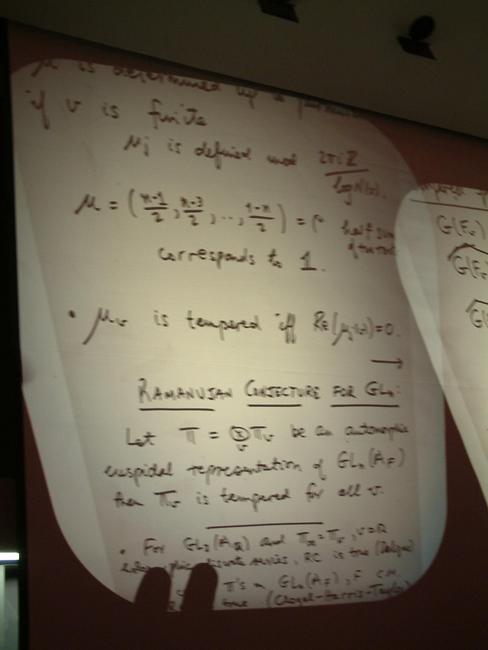 μ is determined up to permutation
if v is finite
μj is defined mod 2πiZ / log N(v).
μ = (n-1/2, n-3/2, .., 1-n/2) = ρ half sum
of the roots
corresponds to 1.
• μv is tempered iff Re(μj(v))=0.
→
RAMANUJAN CONJECTURE FOR GLn:
Let Π = ⊗v Πv be an automorphic
cuspidal representation of GLn(AF)
then Πv is tempered for all v.
• For GL2(AQ) and Π∞ = Πv, v=R
discrete series, RC is true (Deligne)
Π's on GLn(AF), F CM
true (Clozel-Harris-Taylor)
G(Fv)
G(Fv)
G